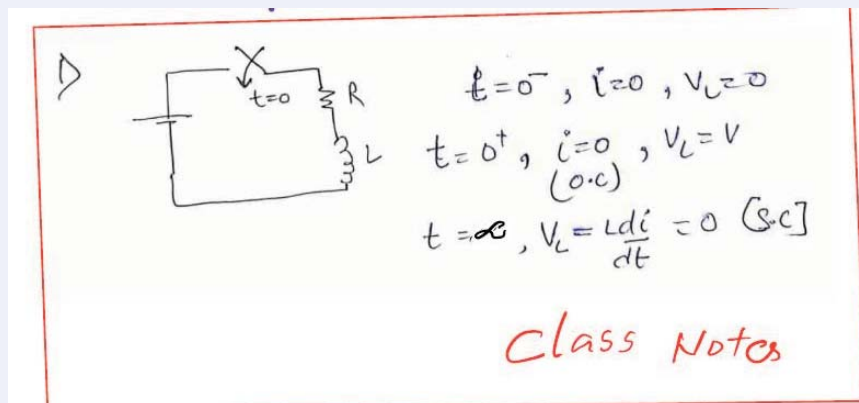 1)
t=0
R
L
t=0⁻, i=0, V_L=0
t=0⁺, i=0, V_L=V
(o.c)
t=∞, V_L = L di/dt = 0 (S.C]
Class Notes